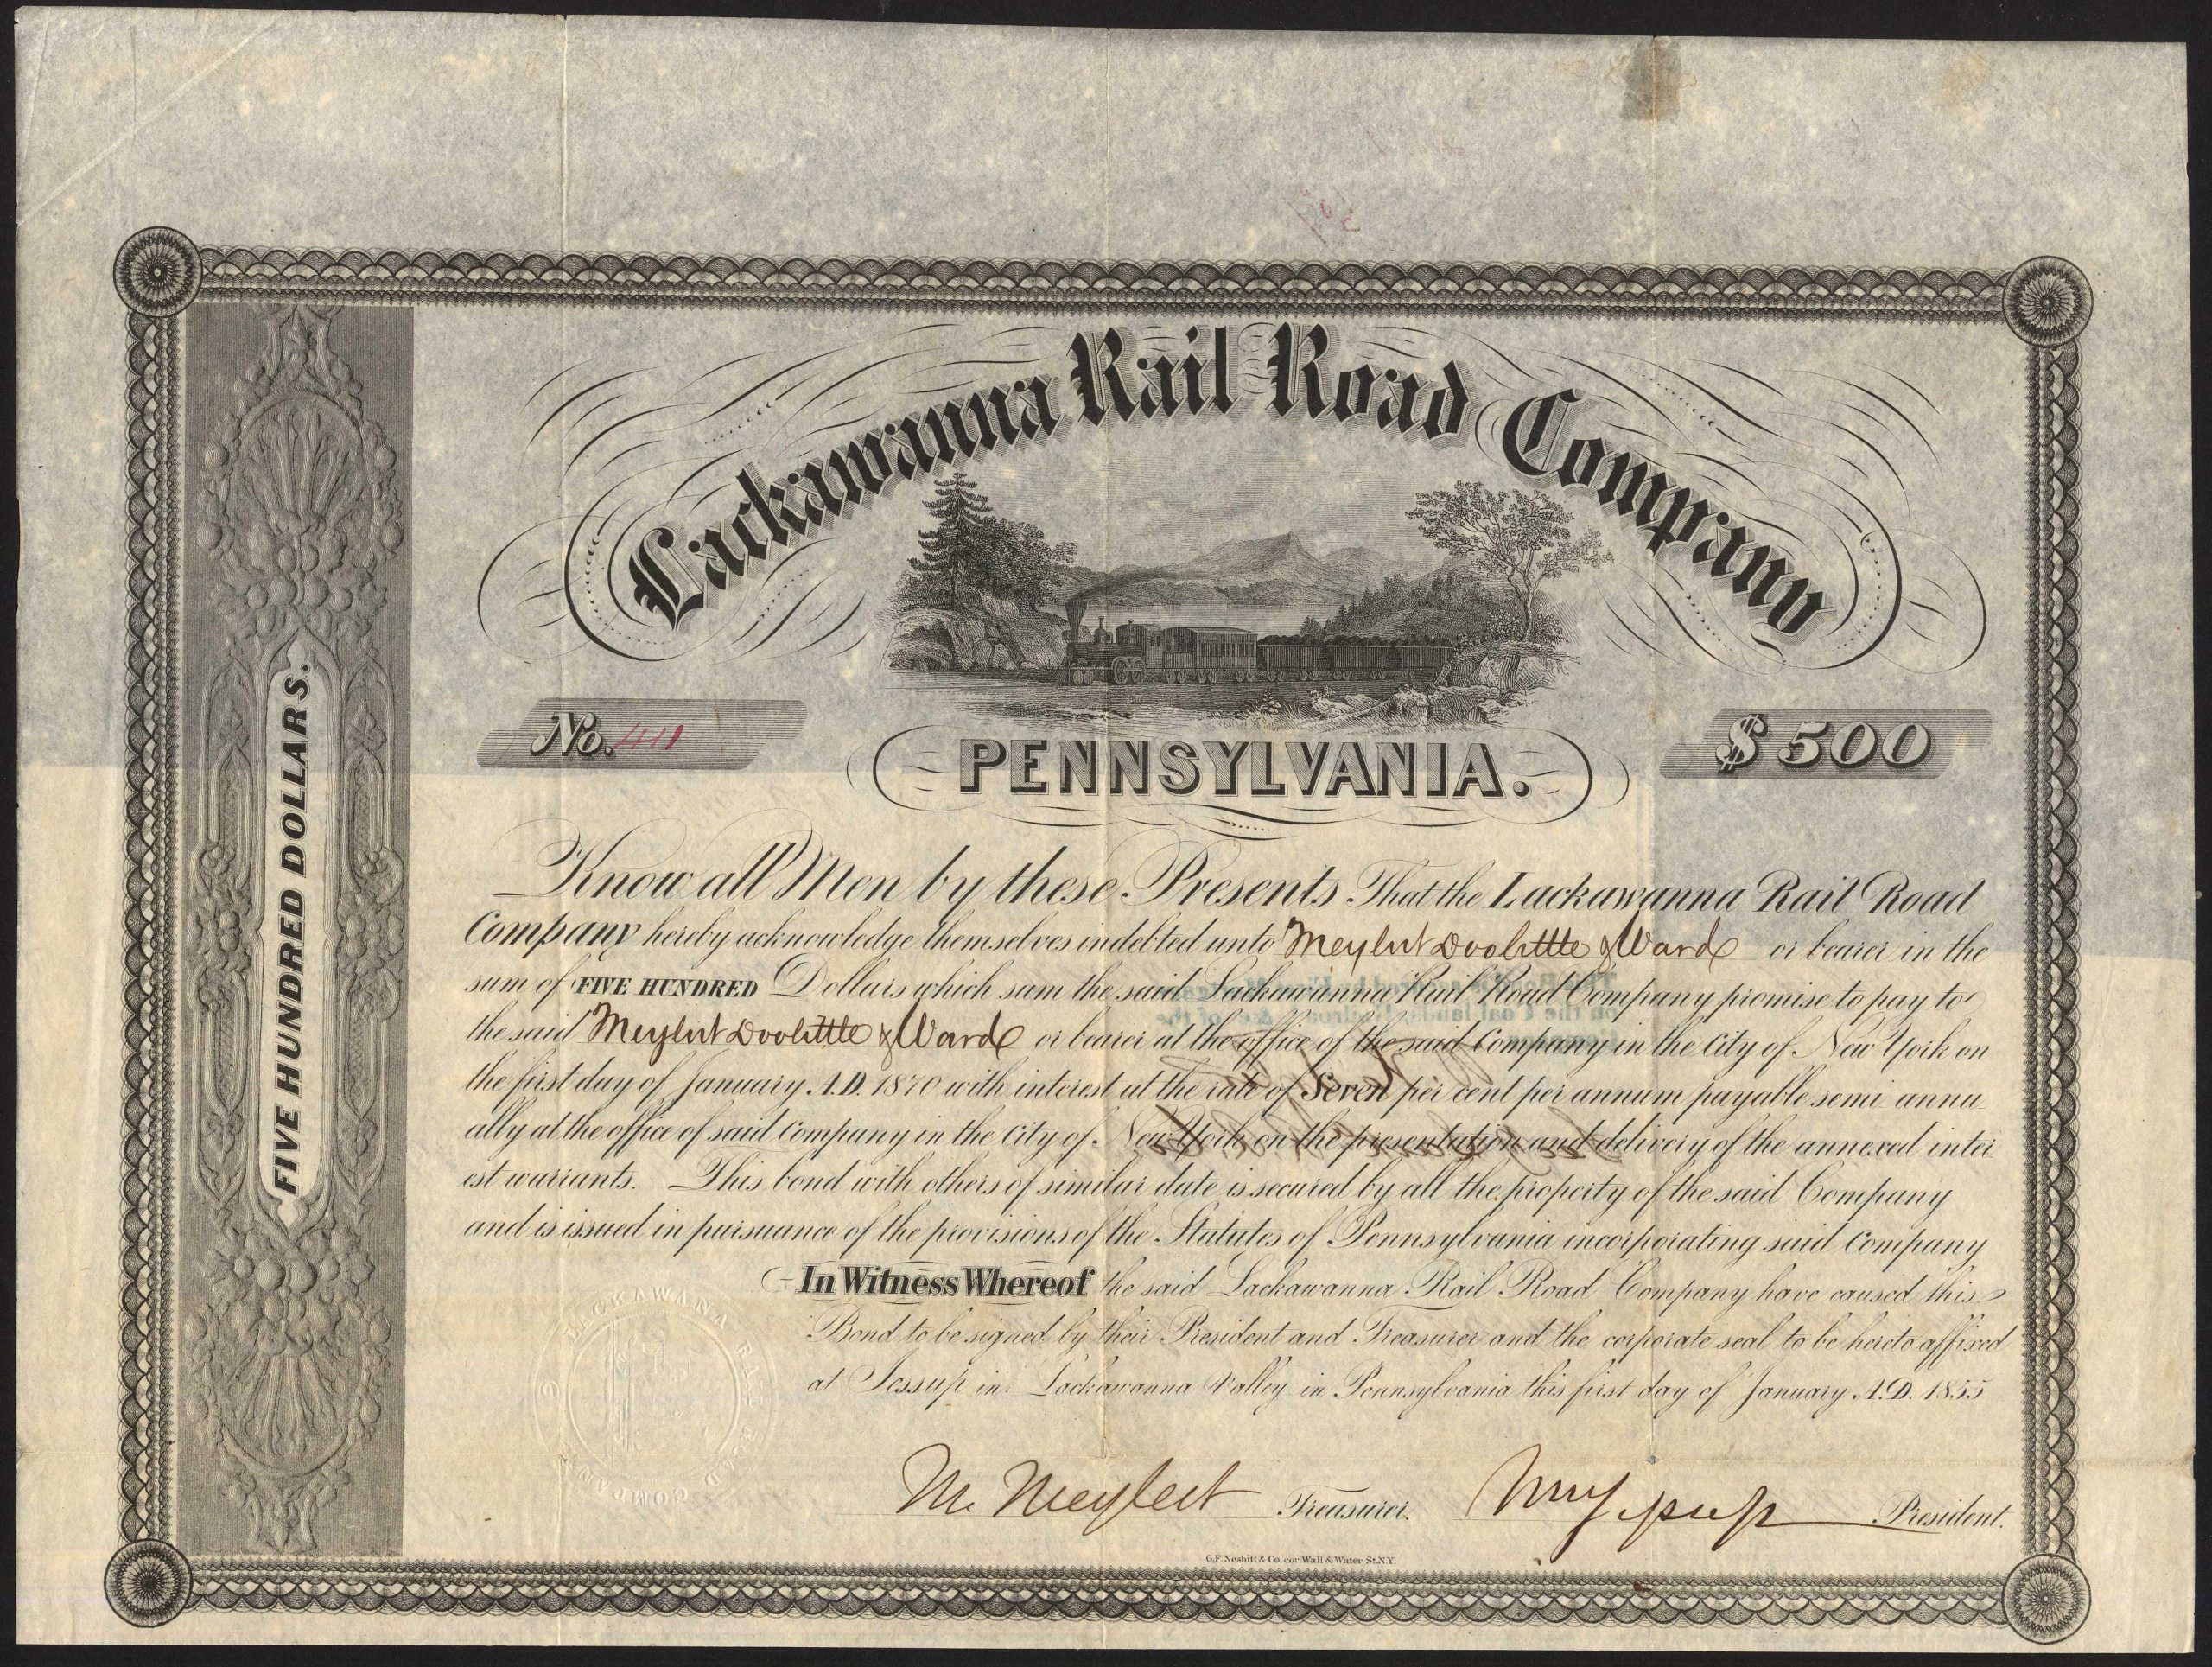 Lackawanna Rail Road Company
No. 411
PENNSYLVANIA.
$500
FIVE HUNDRED DOLLARS.
Know all Men by these Presents That the Lackawanna Rail Road
Company hereby acknowledge themselves indebted unto Meylert Doolittle & Ward or bearer in the
sum of FIVE HUNDRED Dollars which sum the said Lackawanna Rail Road Company promise to pay to
the said Meylert Doolittle & Ward or bearer at the office of the said Company in the City of New York on
the first day of January A.D. 1870 with interest at the rate of Seven per cent per annum payable semi annu
ally at the office of said Company in the City of New York on the presentation and delivery of the annexed inter
est warrants. This bond with others of similar date is secured by all the property of the said Company
and is issued in pursuance of the provisions of the Statutes of Pennsylvania incorporating said Company
In Witness Whereof the said Lackawanna Rail Road Company have caused this
Bond to be signed by their President and Treasurer and the corporate seal to be hereto affixed
at Jessup in Lackawanna Valley in Pennsylvania this first day of January A.D. 1855
LACKAWANA RAIL ROAD COMPANY
M. Meylert Treasurer.
President.
G.F. Nesbitt & Co. cor Wall & Water St. N.Y.